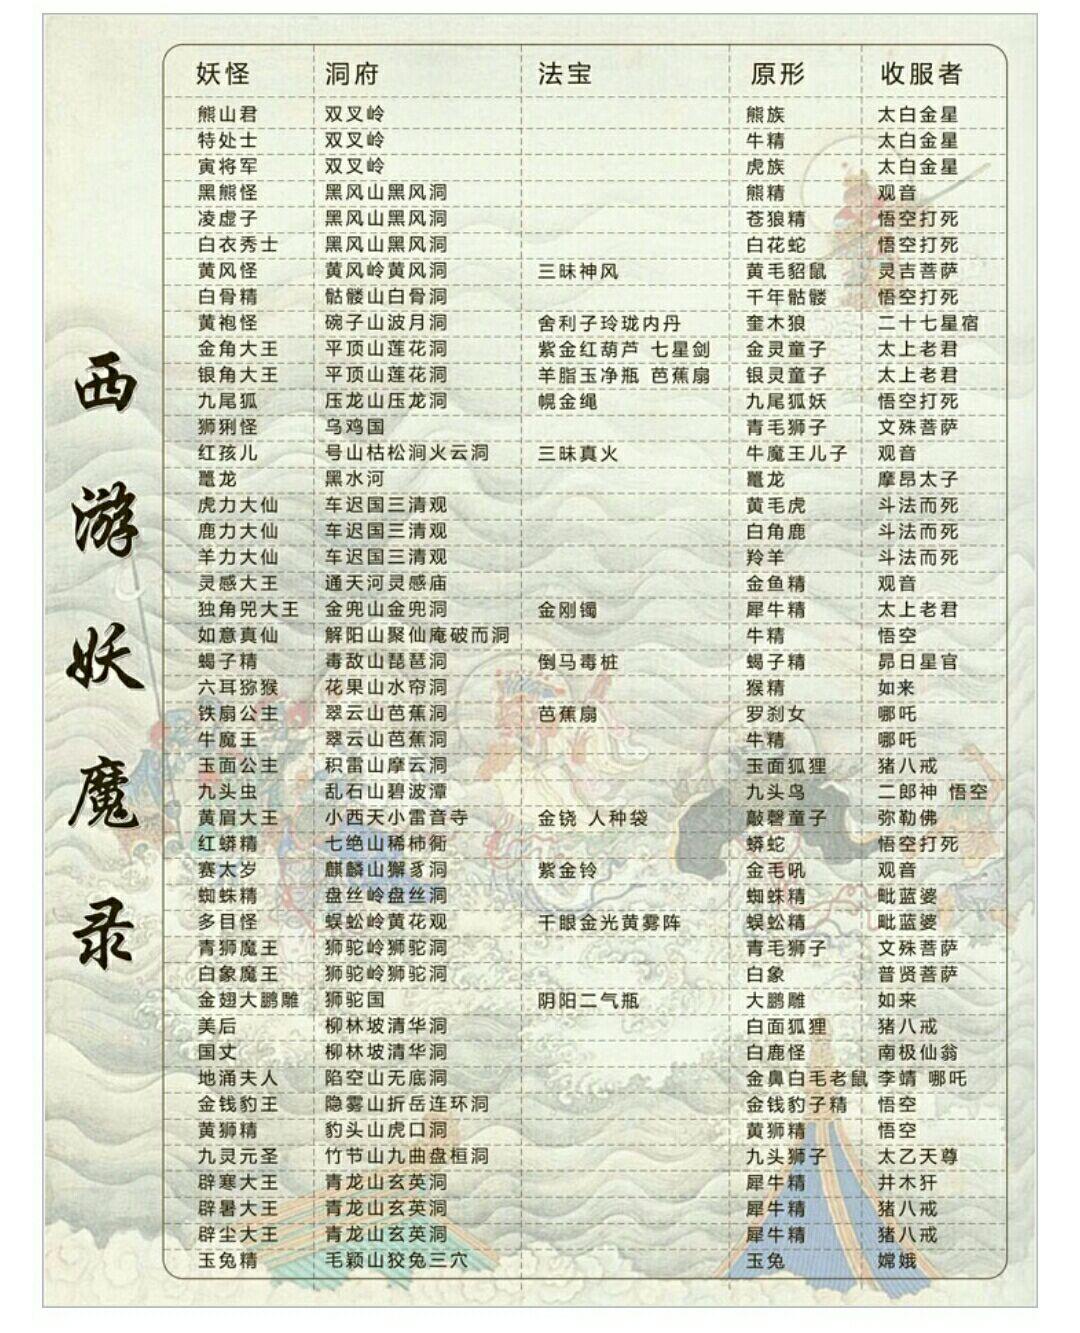 西游妖魔录
妖怪 洞府 法宝 原形 收服者
熊山君 双叉岭 熊族 太白金星
特处士 双叉岭 牛精 太白金星
寅将军 双叉岭 虎族 太白金星
黑熊怪 黑风山黑风洞 熊精 观音
凌虚子 黑风山黑风洞 苍狼精 悟空打死
白衣秀士 黑风山黑风洞 白花蛇 悟空打死
黄风怪 黄风岭黄风洞 三昧神风 黄毛貂鼠 灵吉菩萨
白骨精 骷髅山白骨洞 千年骷髅 悟空打死
黄袍怪 碗子山波月洞 舍利子玲珑内丹 奎木狼 二十七星宿
金角大王 平顶山莲花洞 紫金红葫芦 七星剑 金灵童子 太上老君
银角大王 平顶山莲花洞 羊脂玉净瓶 芭蕉扇 银灵童子 太上老君
九尾狐 压龙山压龙洞 幌金绳 九尾狐妖 悟空打死
狮猁怪 乌鸡国 青毛狮子 文殊菩萨
红孩儿 号山枯松涧火云洞 三昧真火 牛魔王儿子 观音
鼍龙 黑水河 鼍龙 摩昂太子
虎力大仙 车迟国三清观 黄毛虎 斗法而死
鹿力大仙 车迟国三清观 白角鹿 斗法而死
羊力大仙 车迟国三清观 羚羊 斗法而死
灵感大王 通天河灵感庙 金鱼精 观音
独角兕大王 金兜山金兜洞 金刚镯 犀牛精 太上老君
如意真仙 解阳山聚仙庵破而洞 牛精 悟空
蝎子精 毒敌山琵琶洞 倒马毒桩 蝎子精 昴日星官
六耳猕猴 花果山水帘洞 猴精 如来
铁扇公主 翠云山芭蕉洞 芭蕉扇 罗刹女 哪吒
牛魔王 翠云山芭蕉洞 牛精 哪吒
玉面公主 积雷山摩云洞 玉面狐狸 猪八戒
九头虫 乱石山碧波潭 九头鸟 二郎神 悟空
黄眉大王 小西天小雷音寺 金铙 人种袋 敲磬童子 弥勒佛
红蟒精 七绝山稀柿衕 蟒蛇 悟空打死
赛太岁 麒麟山獬豸洞 紫金铃 金毛吼 观音
蜘蛛精 盘丝岭盘丝洞 蜘蛛精 毗蓝婆
多目怪 蜈蚣岭黄花观 千眼金光黄雾阵 蜈蚣精 毗蓝婆
青狮魔王 狮驼岭狮驼洞 青毛狮子 文殊菩萨
白象魔王 狮驼岭狮驼洞 白象 普贤菩萨
金翅大鹏雕 狮驼国 阴阳二气瓶 大鹏雕 如来
美后 柳林坡清华洞 白面狐狸 猪八戒
国丈 柳林坡清华洞 白鹿怪 南极仙翁
地涌夫人 陷空山无底洞 金鼻白毛老鼠 李靖 哪吒
金钱豹王 隐雾山折岳连环洞 金钱豹子精 悟空
黄狮精 豹头山虎口洞 黄狮精 悟空
九灵元圣 竹节山九曲盘桓洞 九头狮子 太乙天尊
辟寒大王 青龙山玄英洞 犀牛精 井木犴
辟暑大王 青龙山玄英洞 犀牛精 猪八戒
辟尘大王 青龙山玄英洞 犀牛精 猪八戒
玉兔精 毛颖山狡兔三穴 玉兔 嫦娥